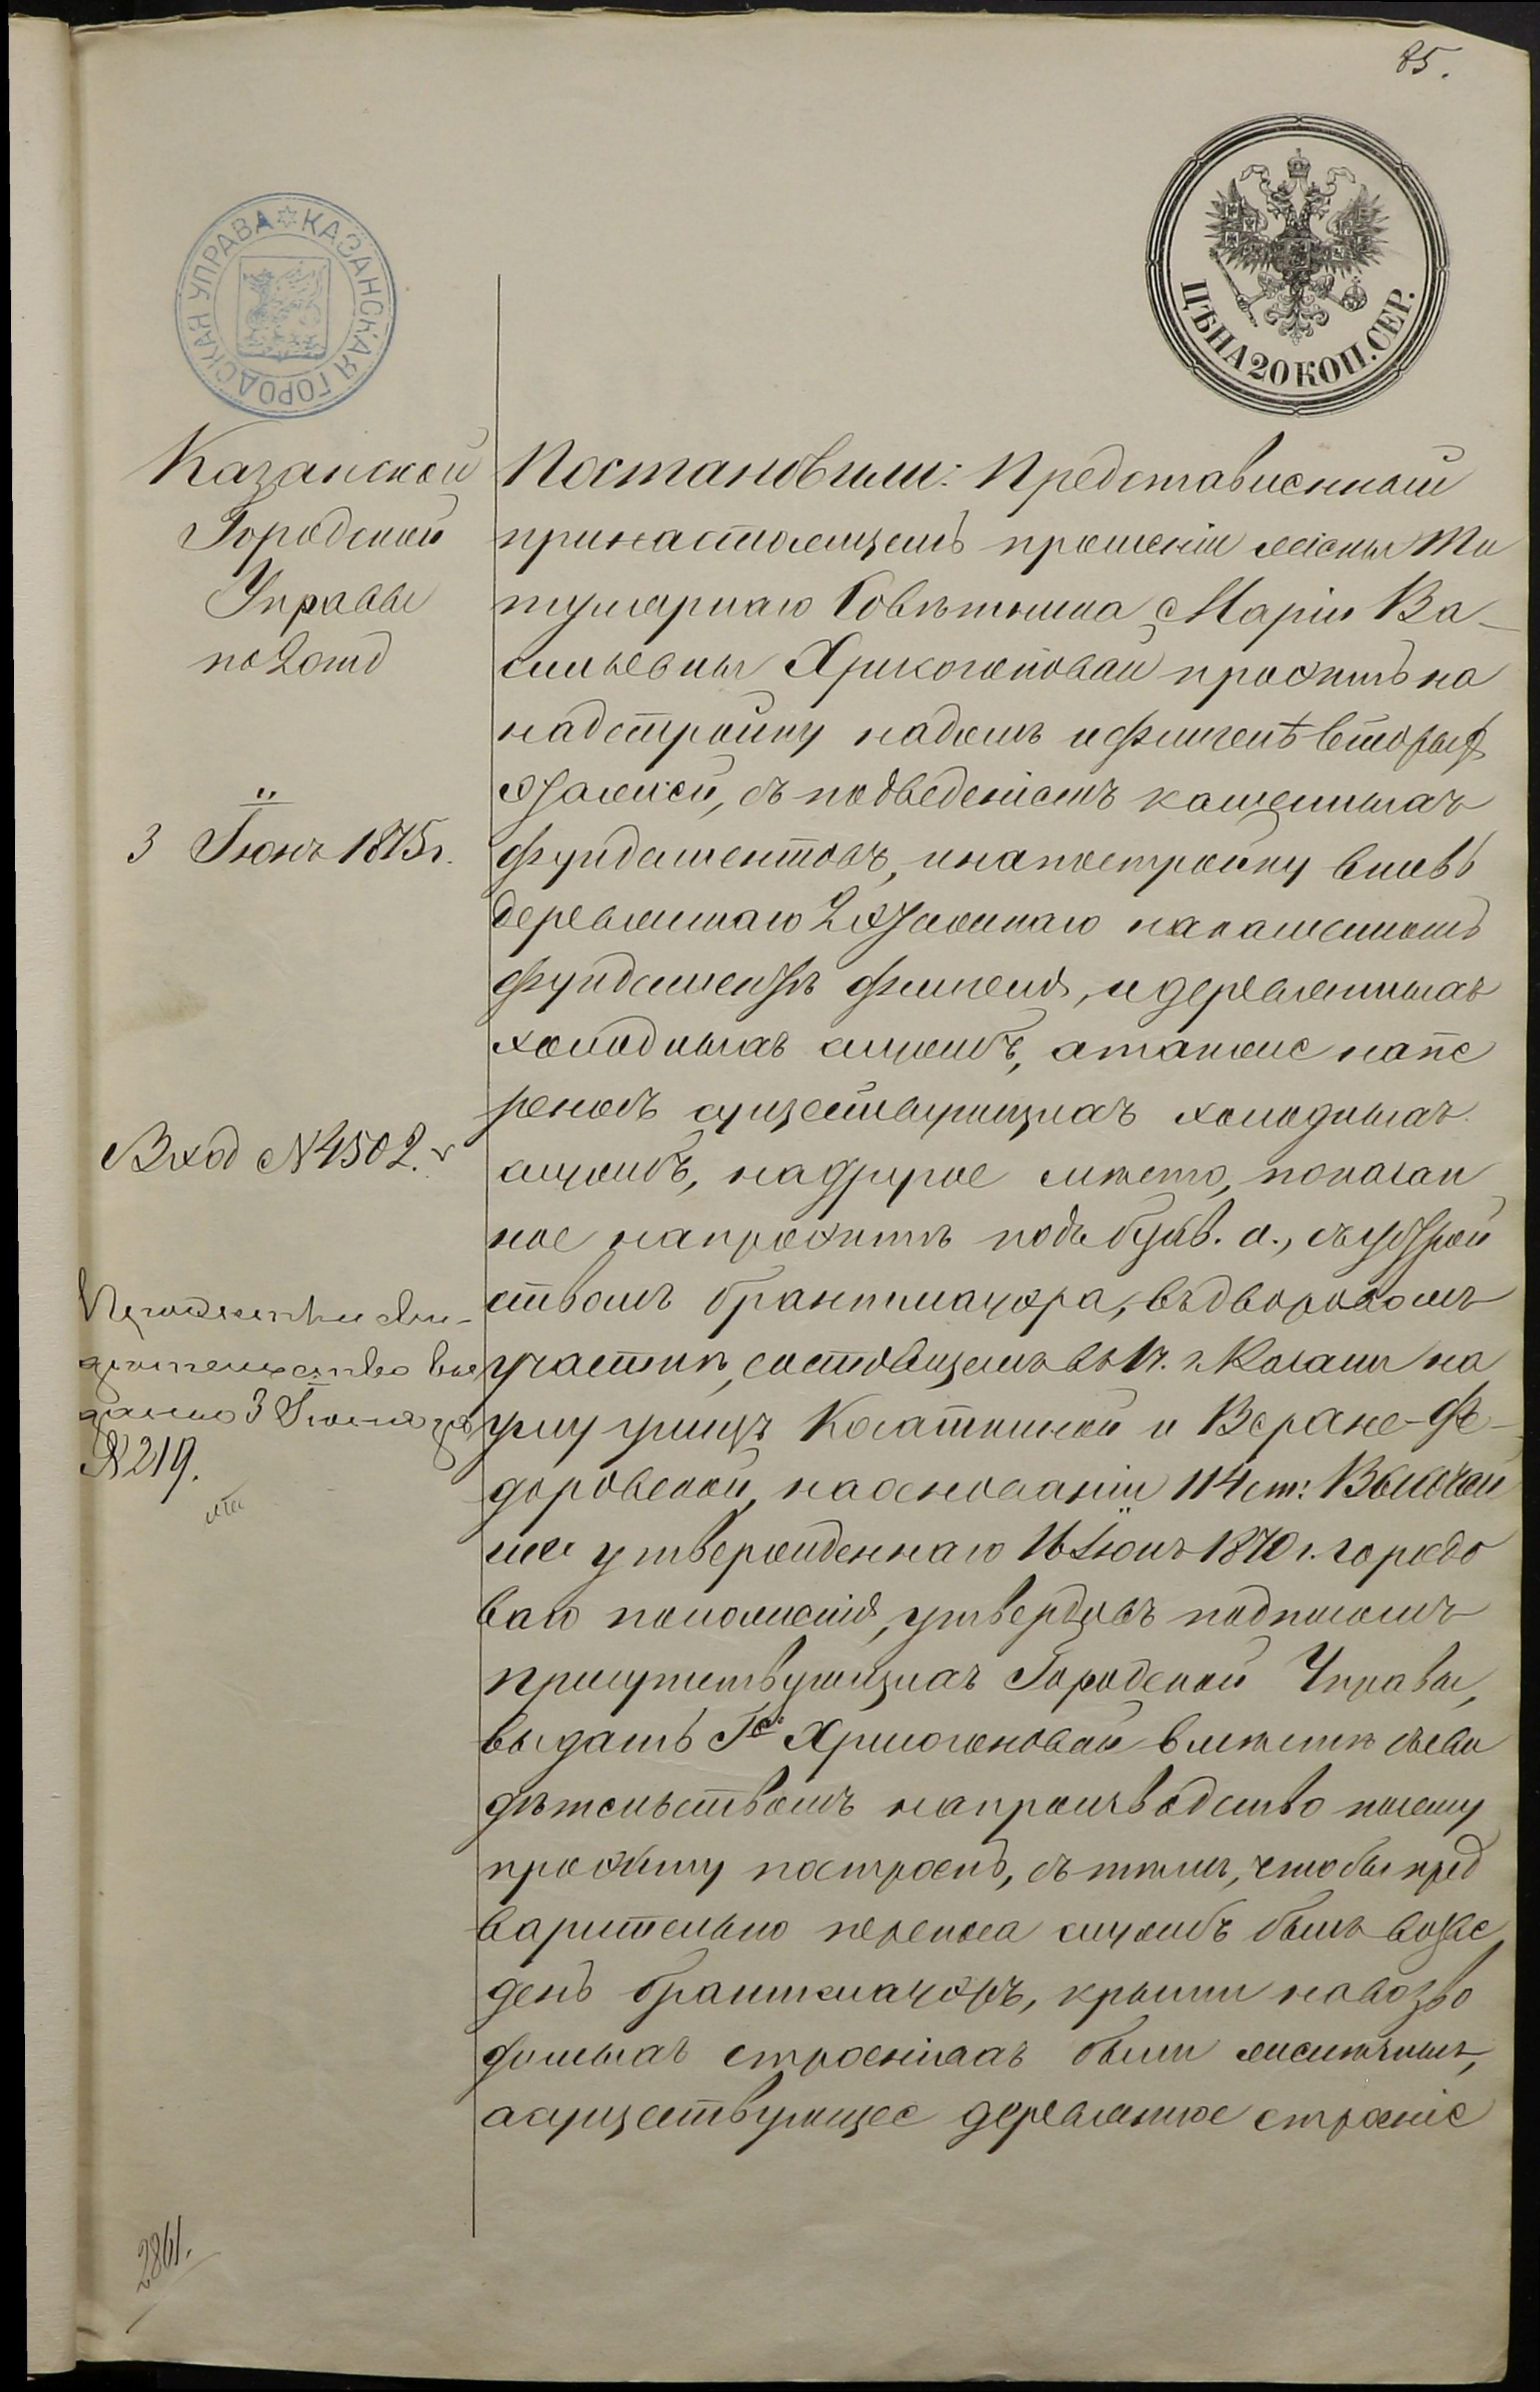 85.
КАЗАНСКАЯ ГОРОДСКАЯ УПРАВА
ЦѢНА 20 КОП. СЕР.
Казанской
Городской
Управы
по 2 отд
3 Іюня 1875 г.
Вход № 4502.
дѣтельство вы
дано 3 Іюня за
№ 219.
2861.
Постановили: Представленный
при настоящемъ прошеніи жены Ти
тулярнаго Совѣтника Маріи Ва-
сильевны Хрисогоновой проэктъ на
надстройку надомъ и флигелѣ вторыхъ
этажей, съ подведеніемъ каменныхъ
фундаментовъ, и на постройку вновь
деревяннаго 2 этажнаго на каменномъ
фундаментѣ флигеля, и деревянныхъ
холодныхъ службъ, а также на пе
реносъ существующихъ холодныхъ
службъ, на другое мѣсто, показан
ное на проэктѣ подъ букв. а., съ устрой
ствомъ брантмауэра, въ дворовомъ
участкѣ, состоящемъ въ 1 ч. г. Казани на
углу улицъ Касаткиной и Верхне-Фе-
доровской, на основаніи 114 ст: Высочай
ше утвержденнаго 16 Іюня 1870 г. городо
ваго положенія, утвердивъ подписомъ
присутствующихъ Городской Управы,
выдать Г-жѣ Хрисогоновой вмѣстѣ съ сви
дѣтельствомъ на производство по сему
проэкту построекъ, съ тѣмъ, чтобы пред
варительно переноса службъ былъ возве
денъ брантмауэръ, крыши на возво
димыхъ строеніяхъ были желѣзныя,
а существующее деревянное строеніе